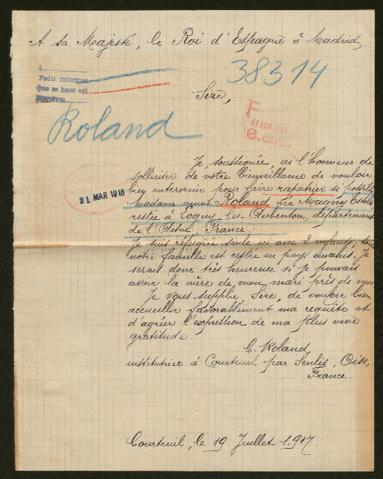 A sa Majesté, le Roi d'Espagne à Madrid,
38314
Sire,
Roland
21 MAR 1918
Je soussignée, ai l'honneur de
solliciter de votre bienveillance de vouloir
bien intervenir pour faire rapatrier si possible
madame veuve Roland, née
restée à Logny-les-Aubenton, département
de l'Aisne, France.
Je suis réfugiée seule ici avec 2 enfants,
notre famille est restée en pays envahis. Je
serais donc très heureuse si je pouvais
avoir la mère de mon mari près de moi
Je vous supplie Sire, de vouloir bien
accueillir favorablement ma requête et
d'agréer l'expression de ma plus vive
gratitude.
C. Roland
institutrice à Courteuil par Senlis, Oise,
France
Courteuil, le 19 Juillet 1917